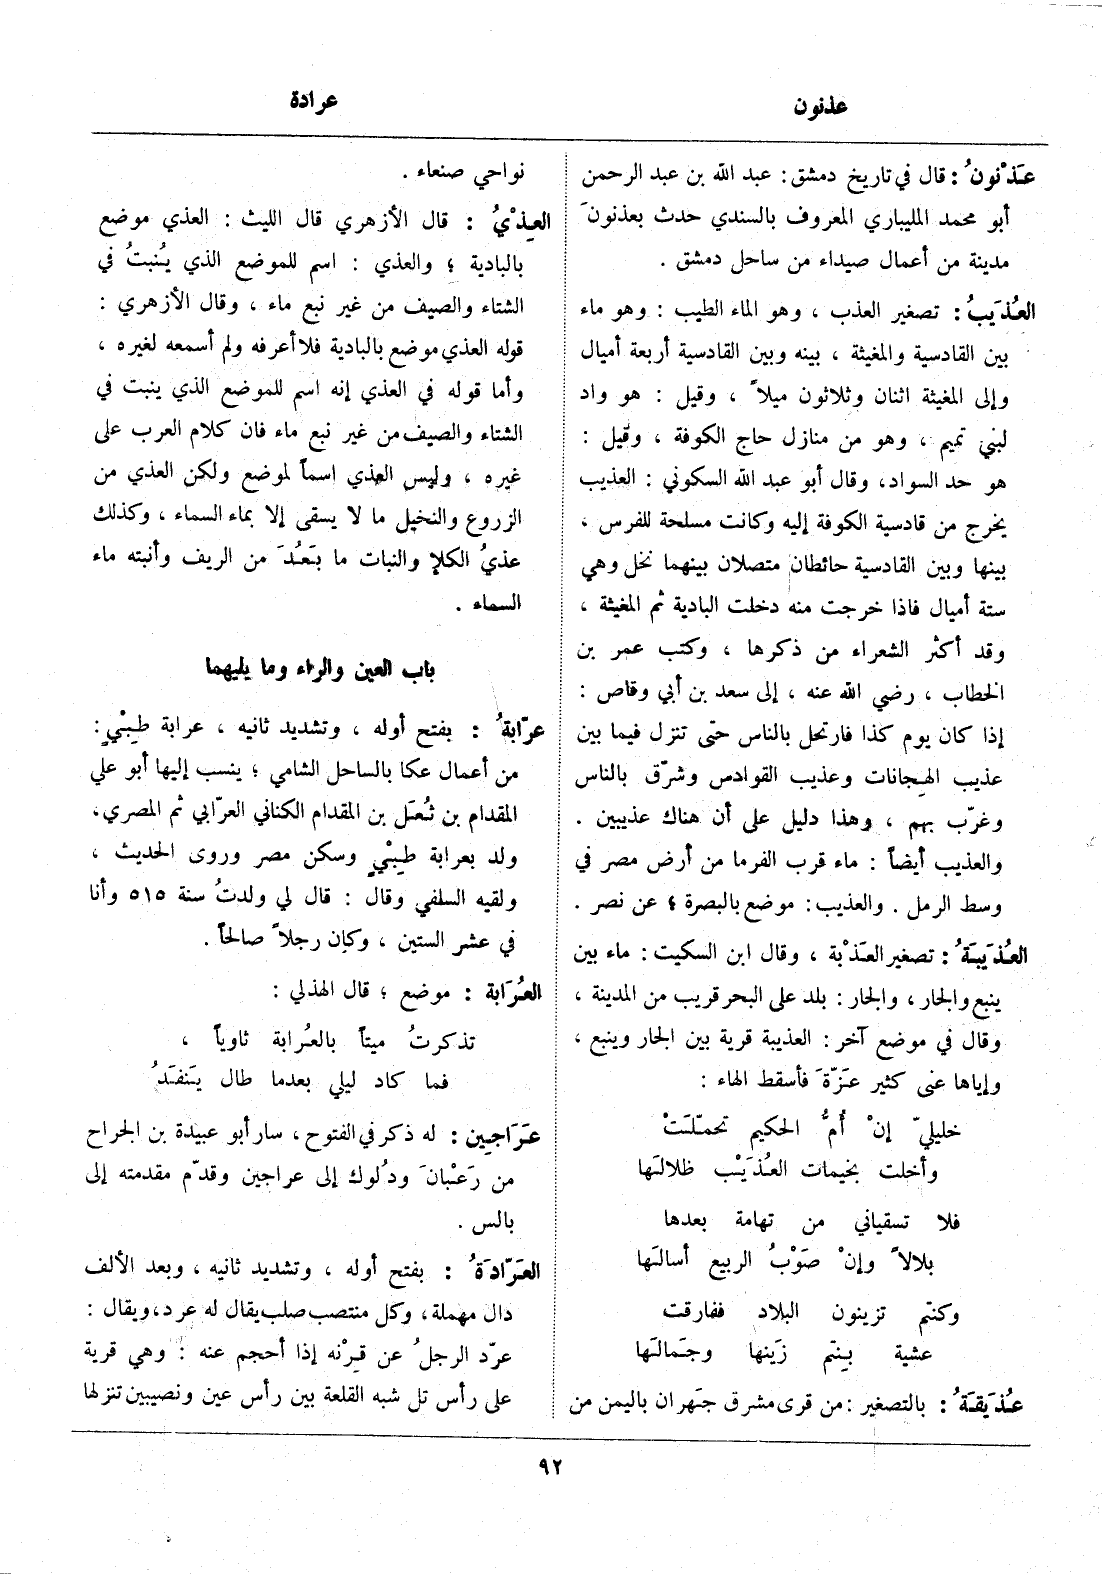 عذنون
عرادة
عَذْنونُ : قال في تاريخ دمشق : عبد الله بن عبد الرحمن
أبو محمد المليباري المعروف بالسندي حدث بعذنونَ
مدينة من أعمال صيداء من ساحل دمشق .
العُذَيبُ : تصغير العذب ، وهو الماء الطيب : وهو ماء
بين القادسية والمغيثة ، بينه وبين القادسية أربعة أميال
وإلى المغيثة اثنان وثلاثون ميلاً ، وقيل : هو واد
لبني تميم ، وهو من منازل حاج الكوفة ، وقيل :
هو حد السواد، وقال أبو عبد الله السكوني : العذيب
يخرج من قادسية الكوفة إليه وكانت مسلحة للفرس ،
بينها وبين القادسية حائطان متصلان بينهما نخل وهي
ستة أميال فاذا خرجت منه دخلت البادية ثم المغيثة ،
وقد أكثر الشعراء من ذكرها ، وكتب عمر بن
الخطاب ، رضي الله عنه ، إلى سعد بن أبي وقاص :
إذا كان يوم كذا فارتحل بالناس حتى تنزل فيما بين
عذيب الهجانات وعذيب القوادس وشرّق بالناس
وغرّب بهم ، وهذا دليل على أن هناك عذيبين .
والعذيب أيضاً : ماء قرب الفرما من أرض مصر في
وسط الرمل . والعذيب: موضع بالبصرة ؛ عن نصر .
العُذَيبَةُ : تصغير العَذْبة ، وقال ابن السكيت : ماء بين
ينبع والجار ، والجار : بلد على البحر قريب من المدينة ،
وقال في موضع آخر : العذيبة قرية بين الجار وينبع ،
وإياها عنى كثير عَزّةَ فأسقط الهاء :
خليليّ إنْ أُمُّ الحكيم تحمّلَتْ
وأخلت بخيمات العُذَيْب ظلالَها
فلا تسقياني من تهامة بعدها
بلالاً وإنْ صَوْبُ الربيع أسالَها
وكنتم تزينون البلاد ففارقت
عشية بِنتم زَينها وجَمالَها
عُذَيقَةُ : بالتصغير : من قرى مشرق جَهران باليمن من
نواحي صنعاء .
العِذْيُ : قال الأزهري قال الليث : العذي موضع
بالبادية ؛ والعذي : اسم للموضع الذي يُنبتُ في
الشتاء والصيف من غير نبع ماء ، وقال الأزهري :
قوله العذي موضع بالبادية فلا أعرفه ولم أسمعه لغيره ،
وأما قوله في العذي إنه اسم للموضع الذي ينبت في
الشتاء والصيف من غير نبع ماء فان كلام العرب على
غيره ، وليس العذي اسماً لموضع ولكن العذي من
الزروع والنخيل ما لا يسقى إلا بماء السماء ، وكذلك
عذيُ الكلإ والنبات ما بَعُدَ من الريف وأنبته ماء
السماء .
باب العين والراء وما يليهما
عرّابةُ : بفتح أوله ، وتشديد ثانيه ، عرابة طِبْيٍ :
من أعمال عكا بالساحل الشامي ؛ ينسب إليها أبو علي
المقدام بن ثُعَل بن المقدام الكناني العرّابي ثم المصري،
ولد بعرابة طِبْيٍ وسكن مصر وروى الحديث ،
ولقيه السلفي وقال : قال لي ولدتُ سنة ٥١٥ وأنا
في عشر الستين ، وكان رجلاً صالحاً .
العُرَابة : موضع ؛ قال الهذلي :
تذكرتُ ميتاً بالعُرابة ثاوياً ،
فما كاد ليلي بعدما طال يَنفَدُ
عَرَاجِين : له ذكر في الفتوح ، سار أبو عبيدة بن الجراح
من رَعْبانَ ودُلوك إلى عراجين وقدّم مقدمته إلى
بالس .
العَرّادَةُ : بفتح أوله ، وتشديد ثانيه ، وبعد الألف
دال مهملة، وكل منتصب صلب يقال له عرد، ويقال :
عرّد الرجلُ عن قِرْنه إذا أحجم عنه : وهي قرية
على رأس تل شبه القلعة بين رأس عين ونصيبين تنزلها
٩٢